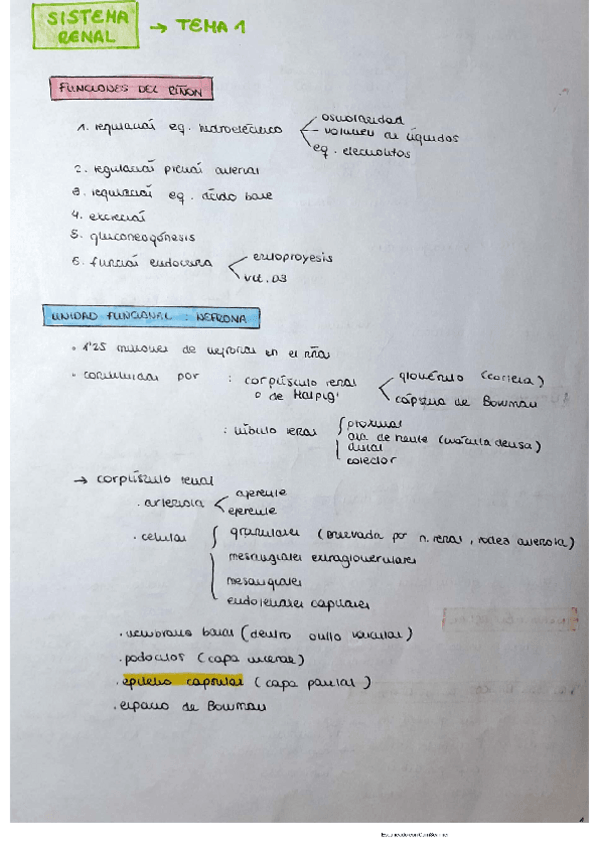 SISTEMA RENAL → TEMA 1
FUNCIONES DEL RIÑÓN
1. regulación eq. hidroeléctrico
osmolaridad
volumen de líquidos
eq. electrolitos
2. regulación presión arterial
3. regulación eq. ácido base
4. excreción
5. gluconeogénesis
6. función endocrina
eritroproyesis
vit. D3
UNIDAD FUNCIONAL : NEFRONA
· 1'25 millones de nefronas en el riñón
· constituidas por : corpúsculo renal
o de Malpigi
glomérulo (corteza)
cápsula de Bowman
: túbulo renal
proximal
asa de Henle (mácula densa)
distal
colector
→ corpúsculo renal
· arteriola
aferente
eferente
· células
granulares (inervada por n. renal, rodea arteriola)
mesangiales extraglomerulares
mesangiales
endoteliales capilares
· membrana basal (dentro ovillo vascular)
· podocitos (capa visceral)
· epitelio capsular (capa parietal)
· espacio de Bowman
Escaneado con CamScanner